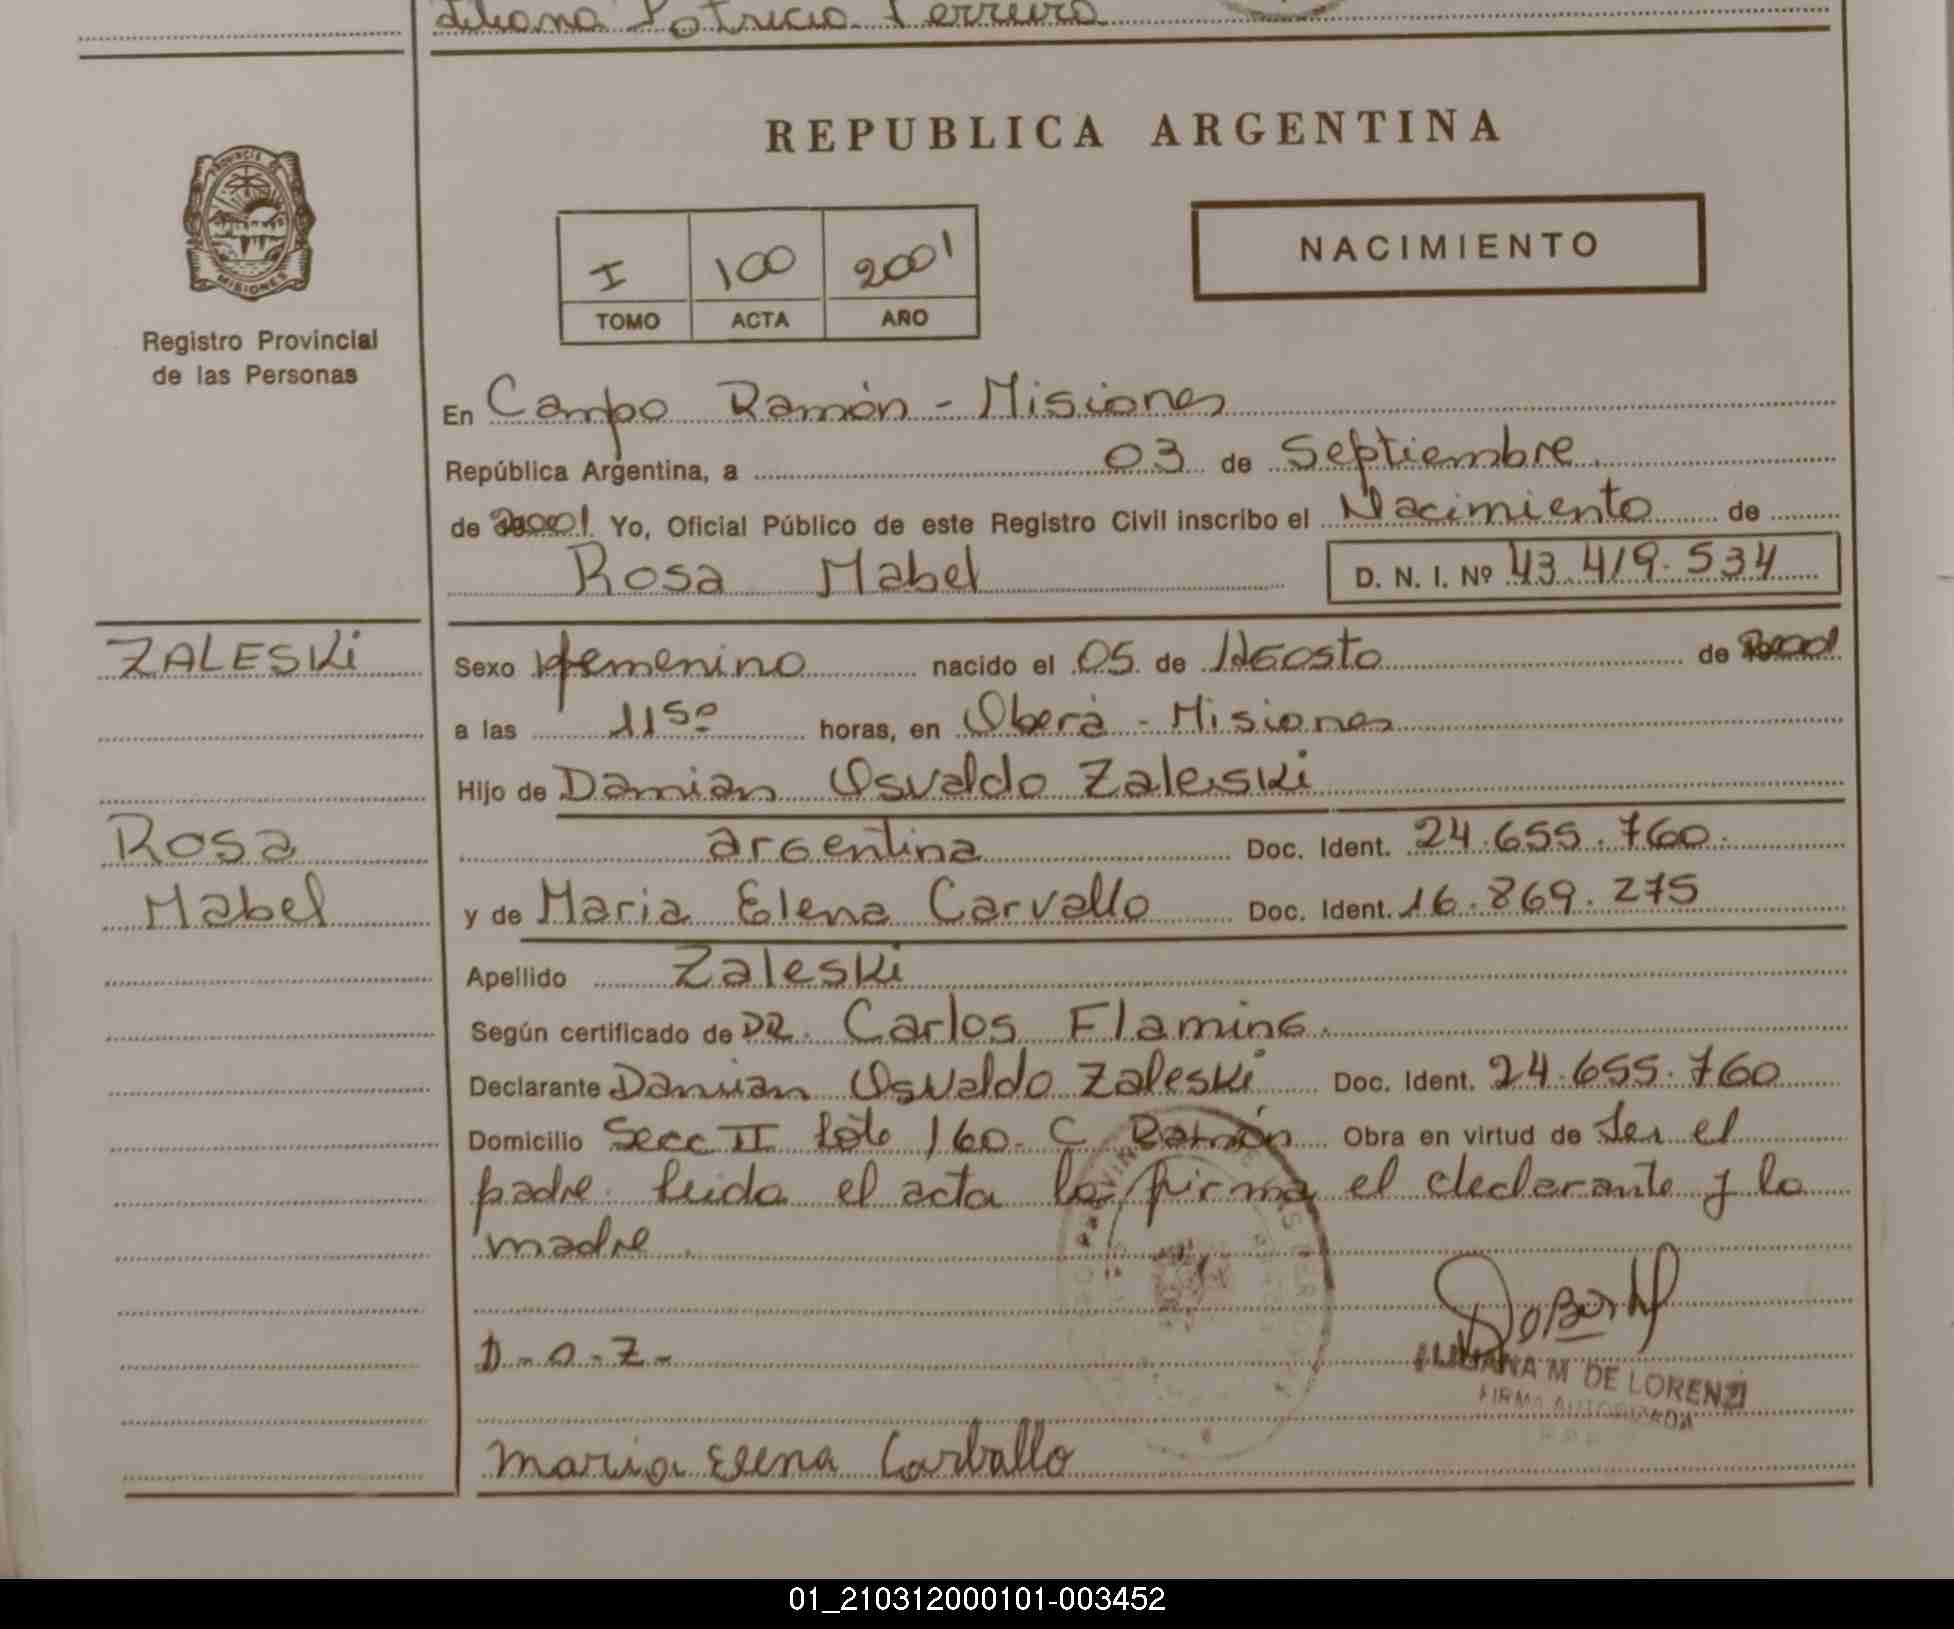 Liliana Patricia Ferreira
REPUBLICA ARGENTINA
PROVINCIA DE
MISIONES
Registro Provincial
de las Personas
I 100 2001
TOMO ACTA AÑO
NACIMIENTO
En Campo Ramón - Misiones
República Argentina, a 03 de Septiembre
de 2001 Yo, Oficial Público de este Registro Civil inscribo el Nacimiento de
Rosa Mabel D. N. I. Nº 43.419.534
ZALESKi
Rosa
Mabel
Sexo femenino nacido el 05 de Agosto de
a las 11 50 horas, en Oberá - Misiones
Hijo de Damian Osvaldo Zaleski
argentina Doc. Ident. 24.655.760.
y de Maria Elena Carvallo Doc. Ident. 16.869.275
Apellido Zaleski
Según certificado de DR. Carlos Flaming.
Declarante Damian Osvaldo Zaleski Doc. Ident. 24.655.760
Domicilio Secc II lote 160. C. Ramón Obra en virtud de Ser el
padre. leida el acta la firma el declarante y la
madre.
D-O-Z-
LILIANA M DE LORENZI
FIRMA AUTORIZADA
maria Elena Carballo
01_210312000101-003452